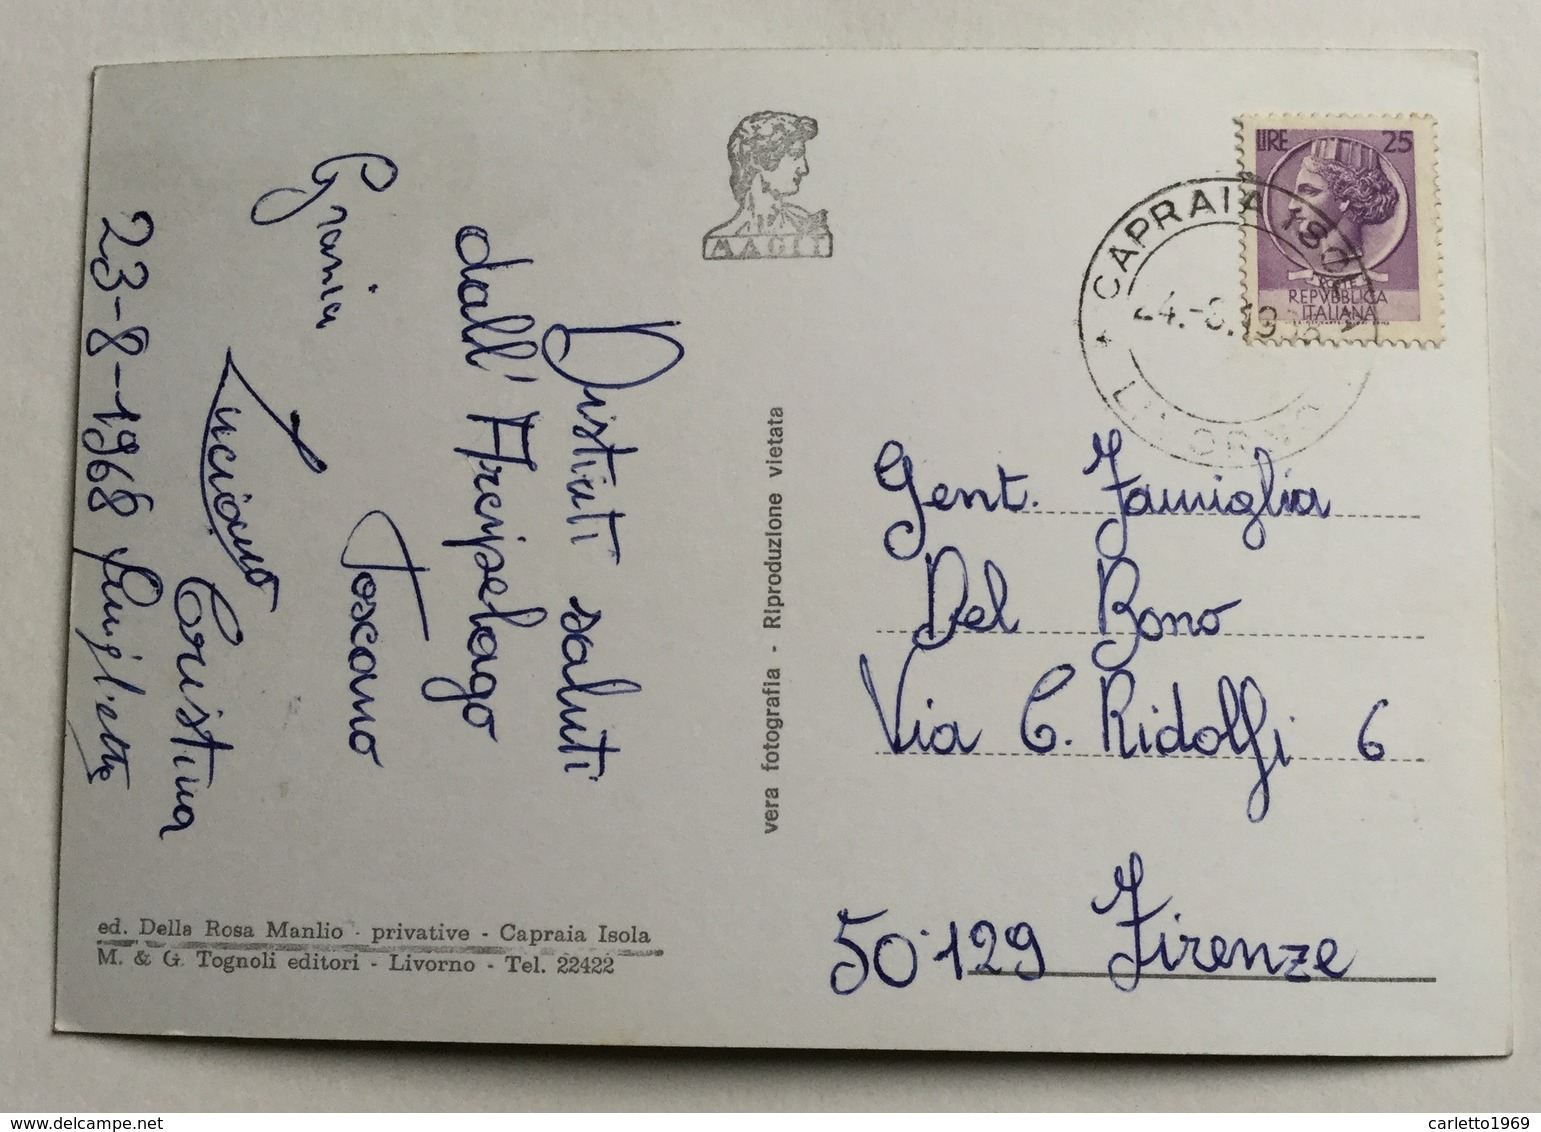 Distinti saluti
dall'Arcipelago
Toscano
Grazia
Luciano
Cristina
23-8-1968 Luiglietta
vera fotografia - Riproduzione vietata
ed. Della Rosa Manlio - privative - Capraia Isola
M. & G. Tognoli editori - Livorno - Tel. 22422
LIRE 25
REPVBBLICA
ITALIANA
* CAPRAIA ISOLA *
LIVORNO
Gent. Famiglia
Del Bono
Via C. Ridolfi 6
50129 Firenze
carletto1969